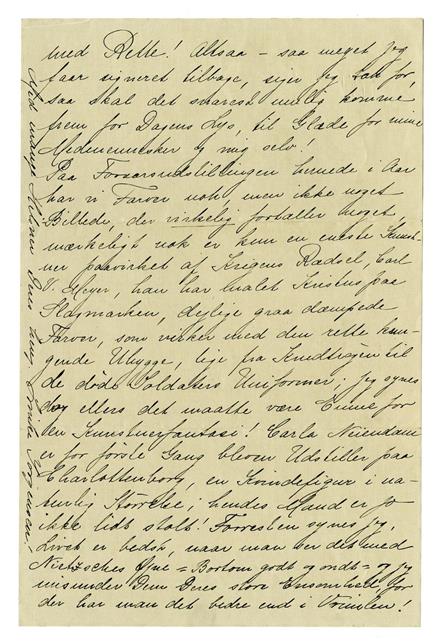 med Rette! Altsaa – saa meget jeg
faar signeret tilbage, siger jeg Tak for,
saa skal det snarest mulig komme
frem for Dagens Lys, til Glæde for mine
Medmennesker og mig selv!
Paa Foraarsudstillingen hernede i Aar
har vi Farver nok, men ikke noget
Billede, der virkelig fortæller noget,
mærkeligt nok er kun en eneste Kunst-
ner paavirket af Krigens Rædsel, Carl
V. Meyer, han har malet Kristus paa
Slagmarken, dejlige graa dæmpede
Farver, som virker med den rette kny-
gende Uhygge, lige fra Krudtrøgen til
de døde Soldaters Uniformer; jeg synes
dog ellers det maatte være Emne for
en Kunstnerfantasi! Carla Neiendam
er for første Gang bleven Udstiller paa
Charlottenborg, en Kvindefigur i na-
turlig Størrelse; hendes Mand er jo
ikke lidt stolt! Forresten synes jeg,
Livet er bedst, naar man ser det med
Nietzsches Øjne = Bortom godt og ondt = og jeg
misunder Dem Deres store Ensomhed, for
der har man det bedre end i Vrimlen!
Med mange Hilsner Deres